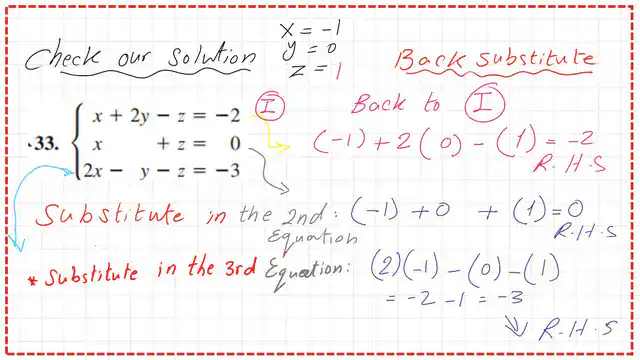 Check our solution
x = -1
y = 0
z = 1
Back substitute
x + 2y - z = -2
I
33.
x + z = 0
2x - y - z = -3
Back to I
(-1) + 2(0) - (1) = -2
R.H.S
Substitute in the 2nd: (-1) + 0 + (1) = 0
Equation
R.H.S
* Substitute in the 3rd Equation: (2)(-1) - (0) - (1)
= -2 - 1 = -3
R.H.S